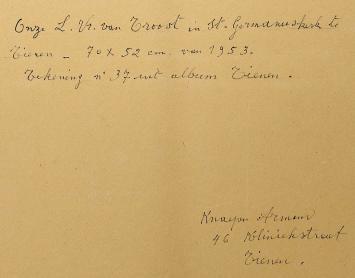 Onze L. Vr. van Troost in St. Germanuskerk te
Tienen - 70 x 52 cm. van 1953.
Tekening n° 37 uit album Tienen.
Knapen Armand
46 Kliniekstraat
Tienen.